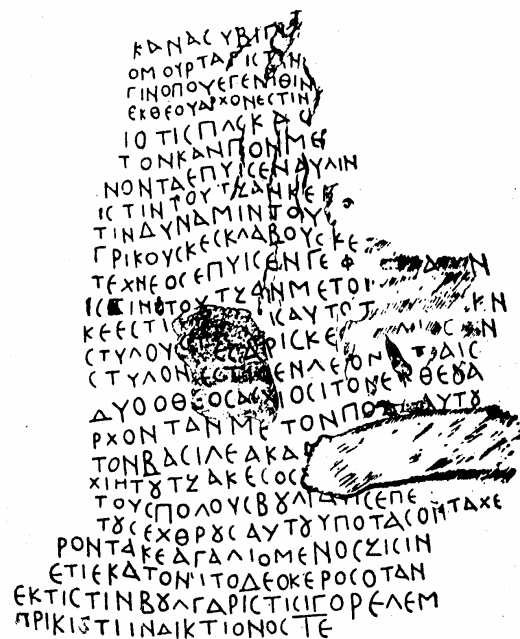 ΚΑΝΑϹΥΒΙΓΙ
ΟΜΟΥΡΤΑΓΙϹΤΙΝ
ΓΙΝΟΠΟΥΕΓΕΝΙΘΙΝ
ΕΚΘΕΟΥΑΡΧΟΝΕϹΤΙΝ
ΙΟΤΙϹΠΛϹΚΑϹ
ΤΟΝΚΑΝΠΟΝΜΕ
ΝΟΝΤΑΕΠΥΙϹΕΝΑΥΛΙΝ
ΙϹΤΙΝΤΟΥΤΖΑΝΚΕ
ΤΙΝΔΥΝΑΜΙΝΤΟΥ
ΓΡΙΚΟΥϹΚΕϹΚΛΑΒΟΥϹΚΕ
ΤΕΧΝΕΟϹΕΠΥΙϹΕΝΓΕΦ
ΙϹΤΙΝΤΟΥΤΖΑΝΜΕΤΟ
ΚΕΕϹΤΙ ΙϹΑΥΤΟ
ϹΤΥΛΟΥϹΤΕϹΑΡΙϹΚΕ
ϹΤΥΛΟΝΕϹΤΙϹΕΝΛΕΟΝΤΑΙϹ
ΔΥΟΟΘΕΟϹΑΞΙΟϹΙΤΟΝΕΚΘΕȢΑ
ΡΧΟΝΤΑΝΜΕΤΟΝΠΟΔΑΑΥΤȢ
ΤΟΝΒΑϹΙΛΕΑΚΑ
ΧΙΗΤȢΤΖΑΚΕϹΟϹ
ΤΟΥϹΠΟΛΟΥϹΒȢΛΓΑΡΙϹΕΠΕ
ΤȢϹΕΧΘΡȢϹΑΥΤȢΥΠΟΤΑϹΟΝΤΑΧΕ
ΡΟΝΤΑΚΕΑΓΑΛΙΟΜΕΝΟϹΖΙϹΙΝ
ΕΤΙΕΚΑΤΟΝΙΤΟΔΕΟΚΕΡΟϹΟΤΑΝ
ΕΚΤΙϹΤΙΝΒȢΛΓΑΡΙϹΤΙϹΙΓΟΡΕΛΕΜ
ΠΡΙΚΙϚΤΙΙΝΔΙΚΤΙΟΝΟϹΤΕ